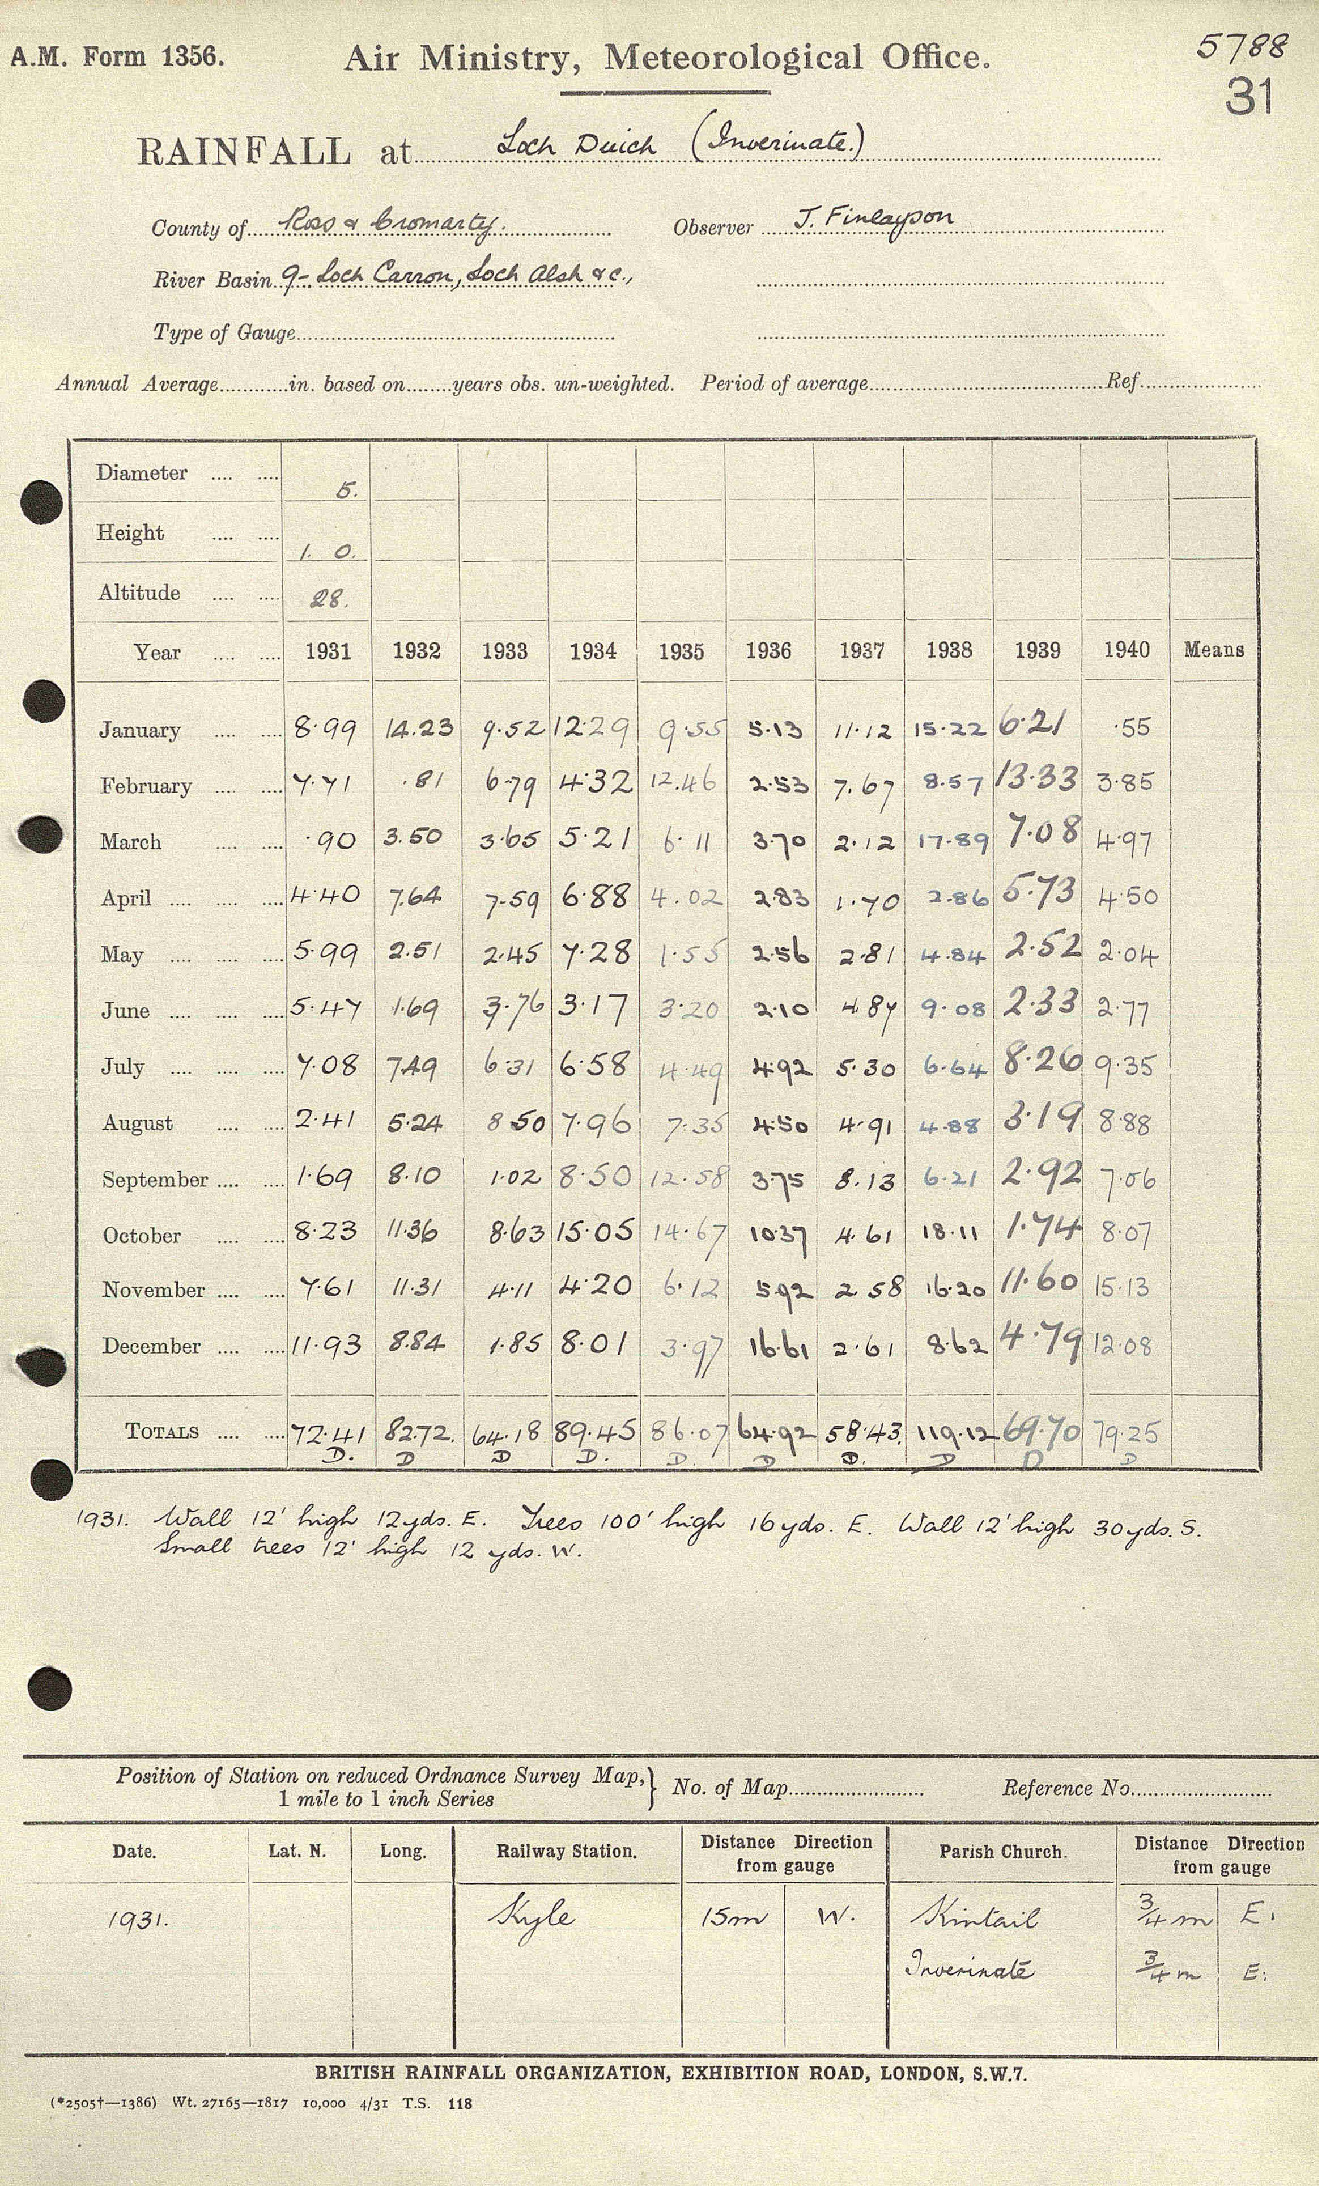 A.M. Form 1356.
Air Ministry, Meteorological Office.
5788
31
RAINFALL at Loch Duich (Inverinate.)
County of Ross & Cromarty. Observer J. Finlayson
River Basin 9- Loch Carron, Loch Alsh &c.,
Type of Gauge
Annual Average in. based on years obs. un-weighted. Period of average Ref
Diameter 5.
Height 1. 0.
Altitude 28.
Year 1931 1932 1933 1934 1935 1936 1937 1938 1939 1940 Means
January 8.99 14.23 9.52 12.29 9.55 5.13 11.12 15.22 6.21 .55
February 7.71 .81 6.79 4.32 12.46 2.53 7.67 8.57 13.33 3.85
March .90 3.50 3.65 5.21 6.11 3.70 2.12 17.89 7.08 4.97
April 4.40 7.64 7.59 6.88 4.02 2.83 1.70 2.86 5.73 4.50
May 5.99 2.51 2.45 7.28 1.55 2.56 2.81 4.84 2.52 2.04
June 5.47 1.69 3.76 3.17 3.20 2.10 4.87 9.08 2.33 2.77
July 7.08 7.49 6.31 6.58 4.49 4.92 5.30 6.64 8.26 9.35
August 2.41 5.24 8.50 7.96 7.35 4.50 4.91 4.88 3.19 8.88
September 1.69 8.10 1.02 8.50 12.58 3.75 8.13 6.21 2.92 7.06
October 8.23 11.36 8.63 15.05 14.67 10.37 4.61 18.11 1.74 8.07
November 7.61 11.31 4.11 4.20 6.12 5.92 2.58 16.20 11.60 15.13
December 11.93 8.84 1.85 8.01 3.97 16.61 2.61 8.62 4.79 12.08
TOTALS 72.41 82.72. 64.18 89.45 86.07 64.92 58.43. 119.12 69.70 79.25
D. D D D. D. D D. D D D
1931. Wall 12' high 12yds. E. Trees 100' high 16yds. E. Wall 12' high 30yds. S.
Small trees 12' high 12 yds. W.
Position of Station on reduced Ordnance Survey Map, 1 mile to 1 inch Series } No. of Map Reference No.
Date. Lat. N. Long. Railway Station. Distance Direction from gauge Parish Church. Distance Direction from gauge
1931. Kyle 15m W. Kintail 3/4 m E.
Inverinate 3/4 m E.
BRITISH RAINFALL ORGANIZATION, EXHIBITION ROAD, LONDON, S.W.7.
(*2505†—1386) Wt. 27165—1817 10,000 4/31 T.S. 118